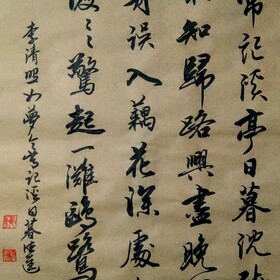 常記溪亭日暮沈
不知歸路興盡晚
舟誤入藕花深處
渡々驚起一灘鷗鷺
李清照如夢令常記溪日暮